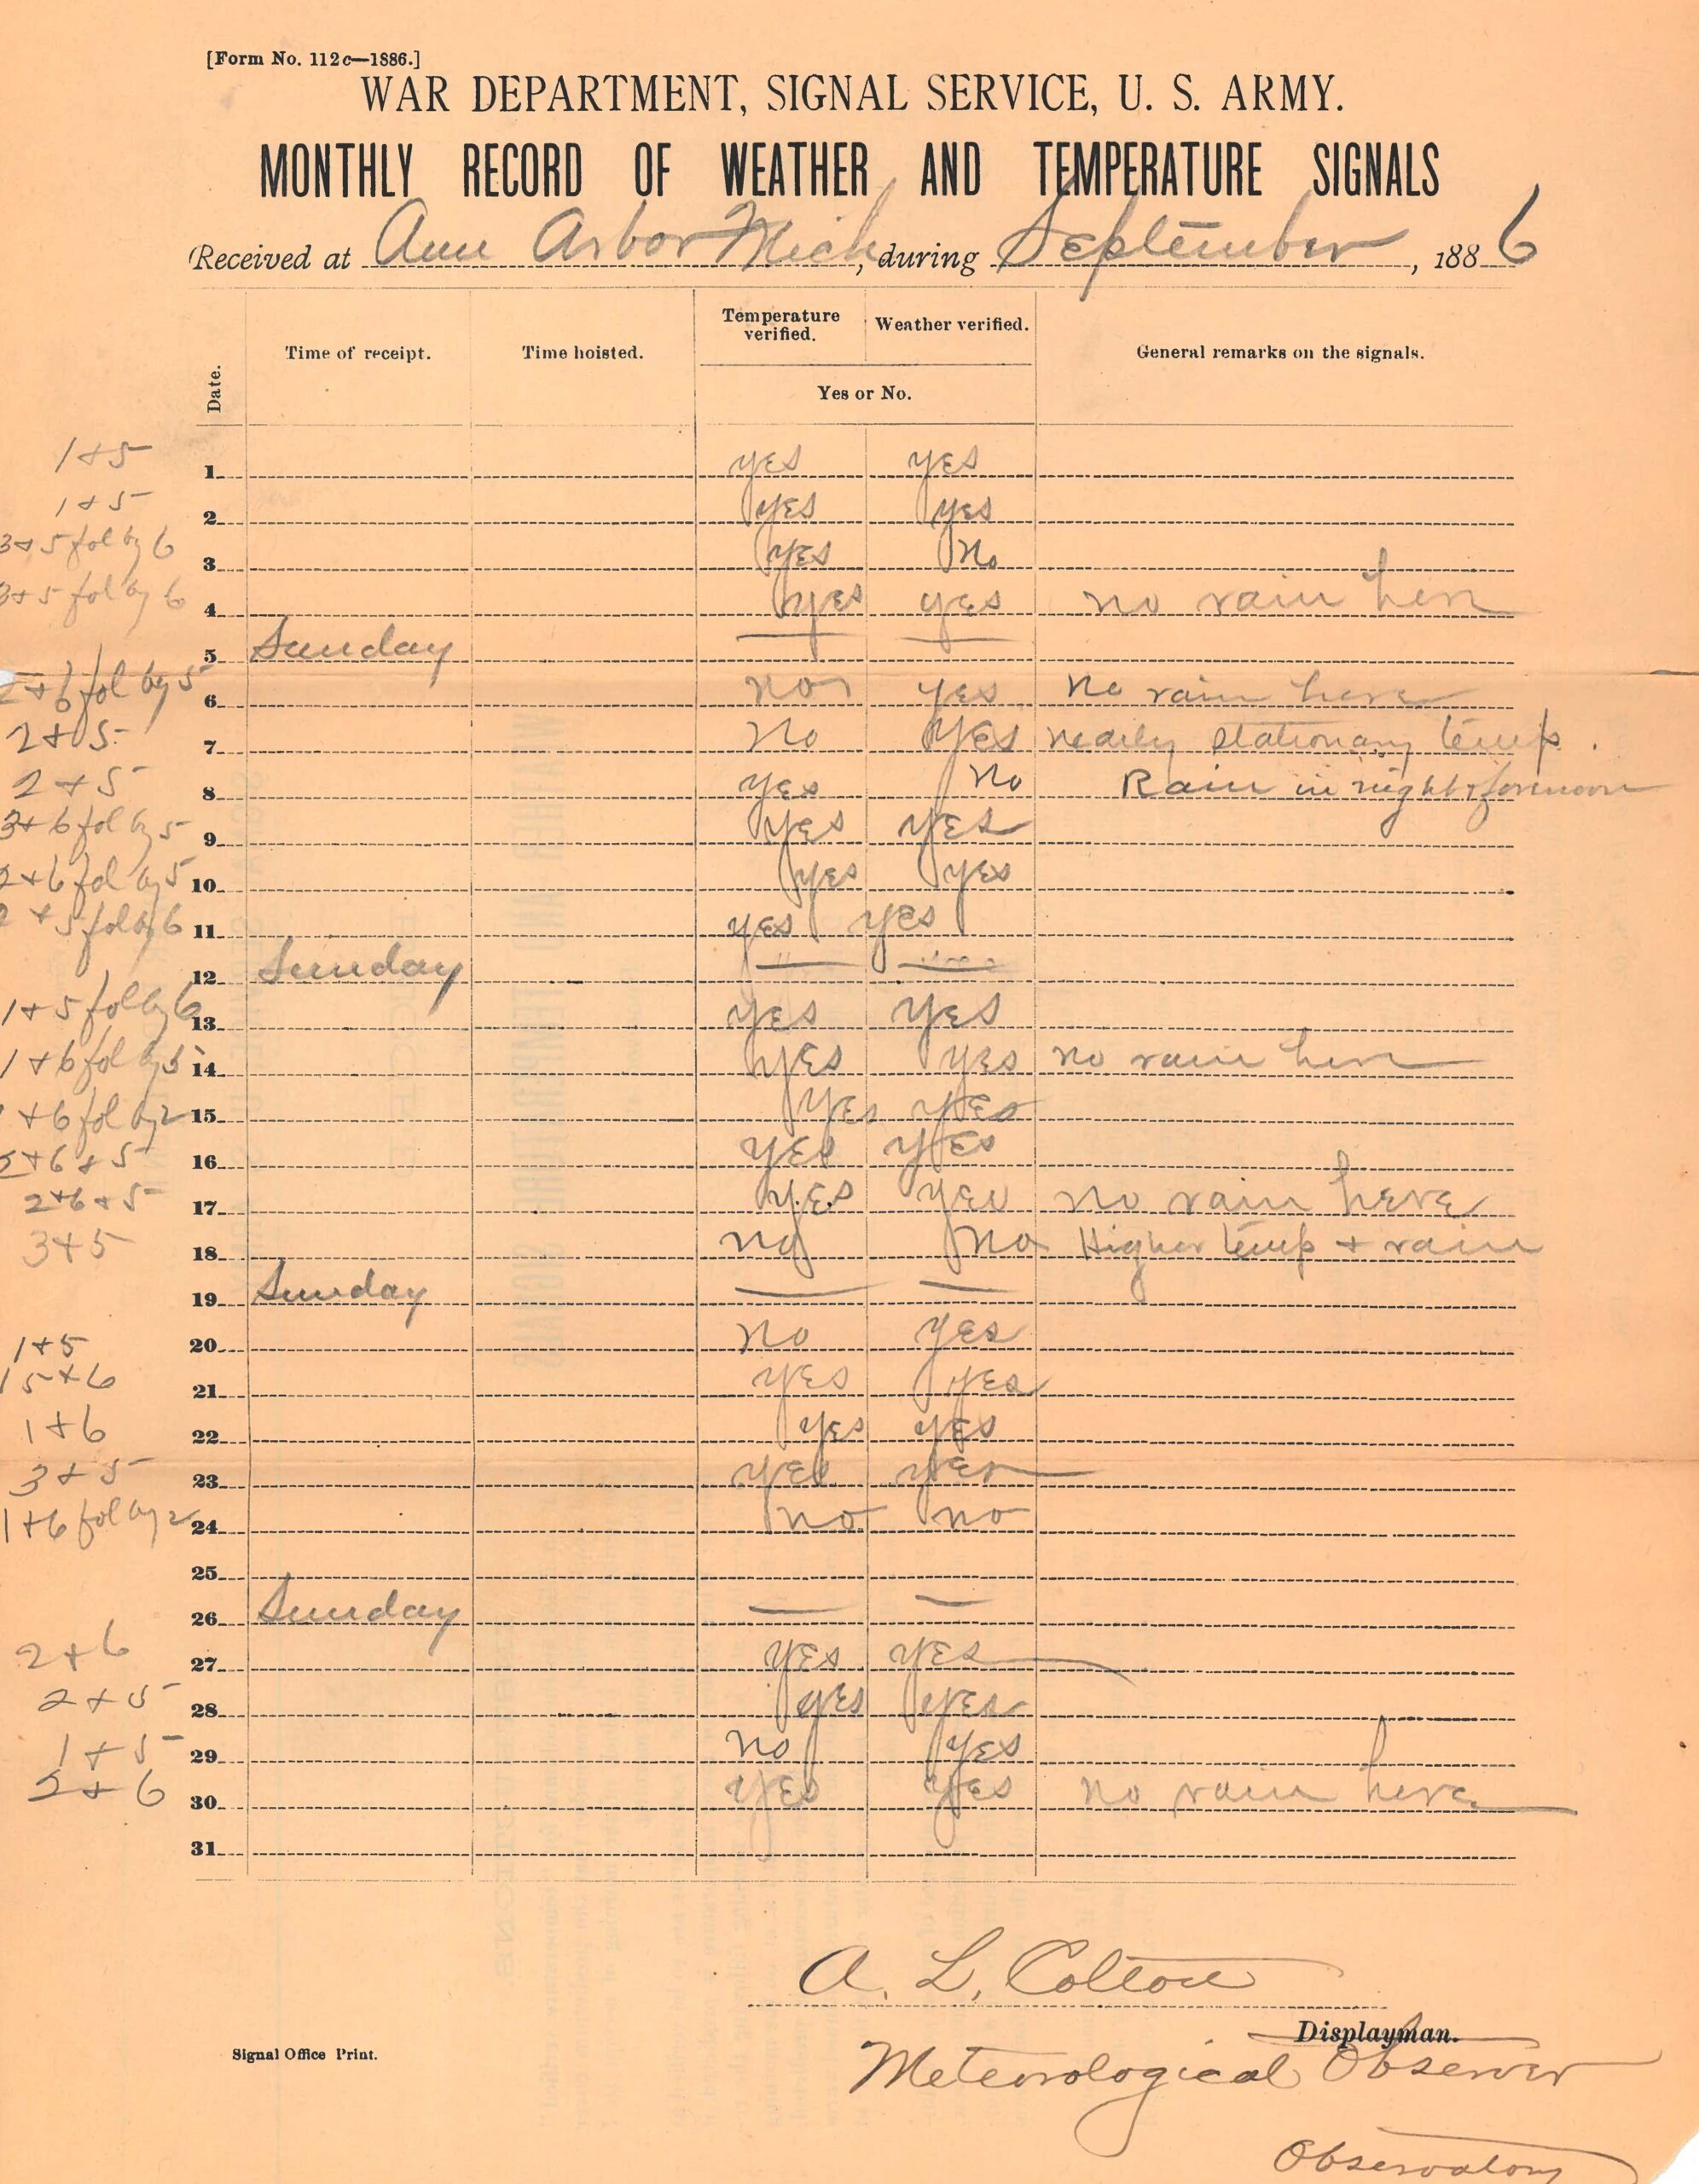 [Form No. 112c—1886.]
WAR DEPARTMENT, SIGNAL SERVICE, U. S. ARMY.
MONTHLY RECORD OF WEATHER AND TEMPERATURE SIGNALS
(Received at Ann Arbor Mich, during September, 1886
Date. Time of receipt. Time hoisted. Temperature verified. Weather verified. General remarks on the signals.
Yes or No.
1+5 1 yes yes
1+5 2 yes yes
3+5 fol by 6 3 yes No
3+5 fol by 6 4 yes yes no rain here
5 Sunday — —
2+6 fol by 5 6 no yes No rain here
2+5 7 No yes nearly stationary temp.
2+5 8 yes No Rain in night & forenoon
3+6 fol by 5 9 yes yes
2+6 fol by 5 10 yes yes
2+5 fol by 6 11 yes yes
12 Sunday — —
1+5 fol by 6 13 yes yes
1+6 fol by 5 14 yes yes no rain here
+6 fol by 2 15 yes yes
2+6+5 16 yes yes
2+6+5 17 yes yes No rain here
3+5 18 no No Higher temp + rain
19 Sunday — —
1+5 20 no yes
1 5+6 21 yes yes
1+6 22 yes yes
3+5 23 yes yes
1+6 fol by 2 24 no no
25
26 Sunday — —
2+6 27 yes yes
2+5 28 yes yes
1+5 29 no yes
2+6 30 yes yes no rain here
31
A. L. Colton
Displayman.
Signal Office Print.
Meteorological Observer
Observatory